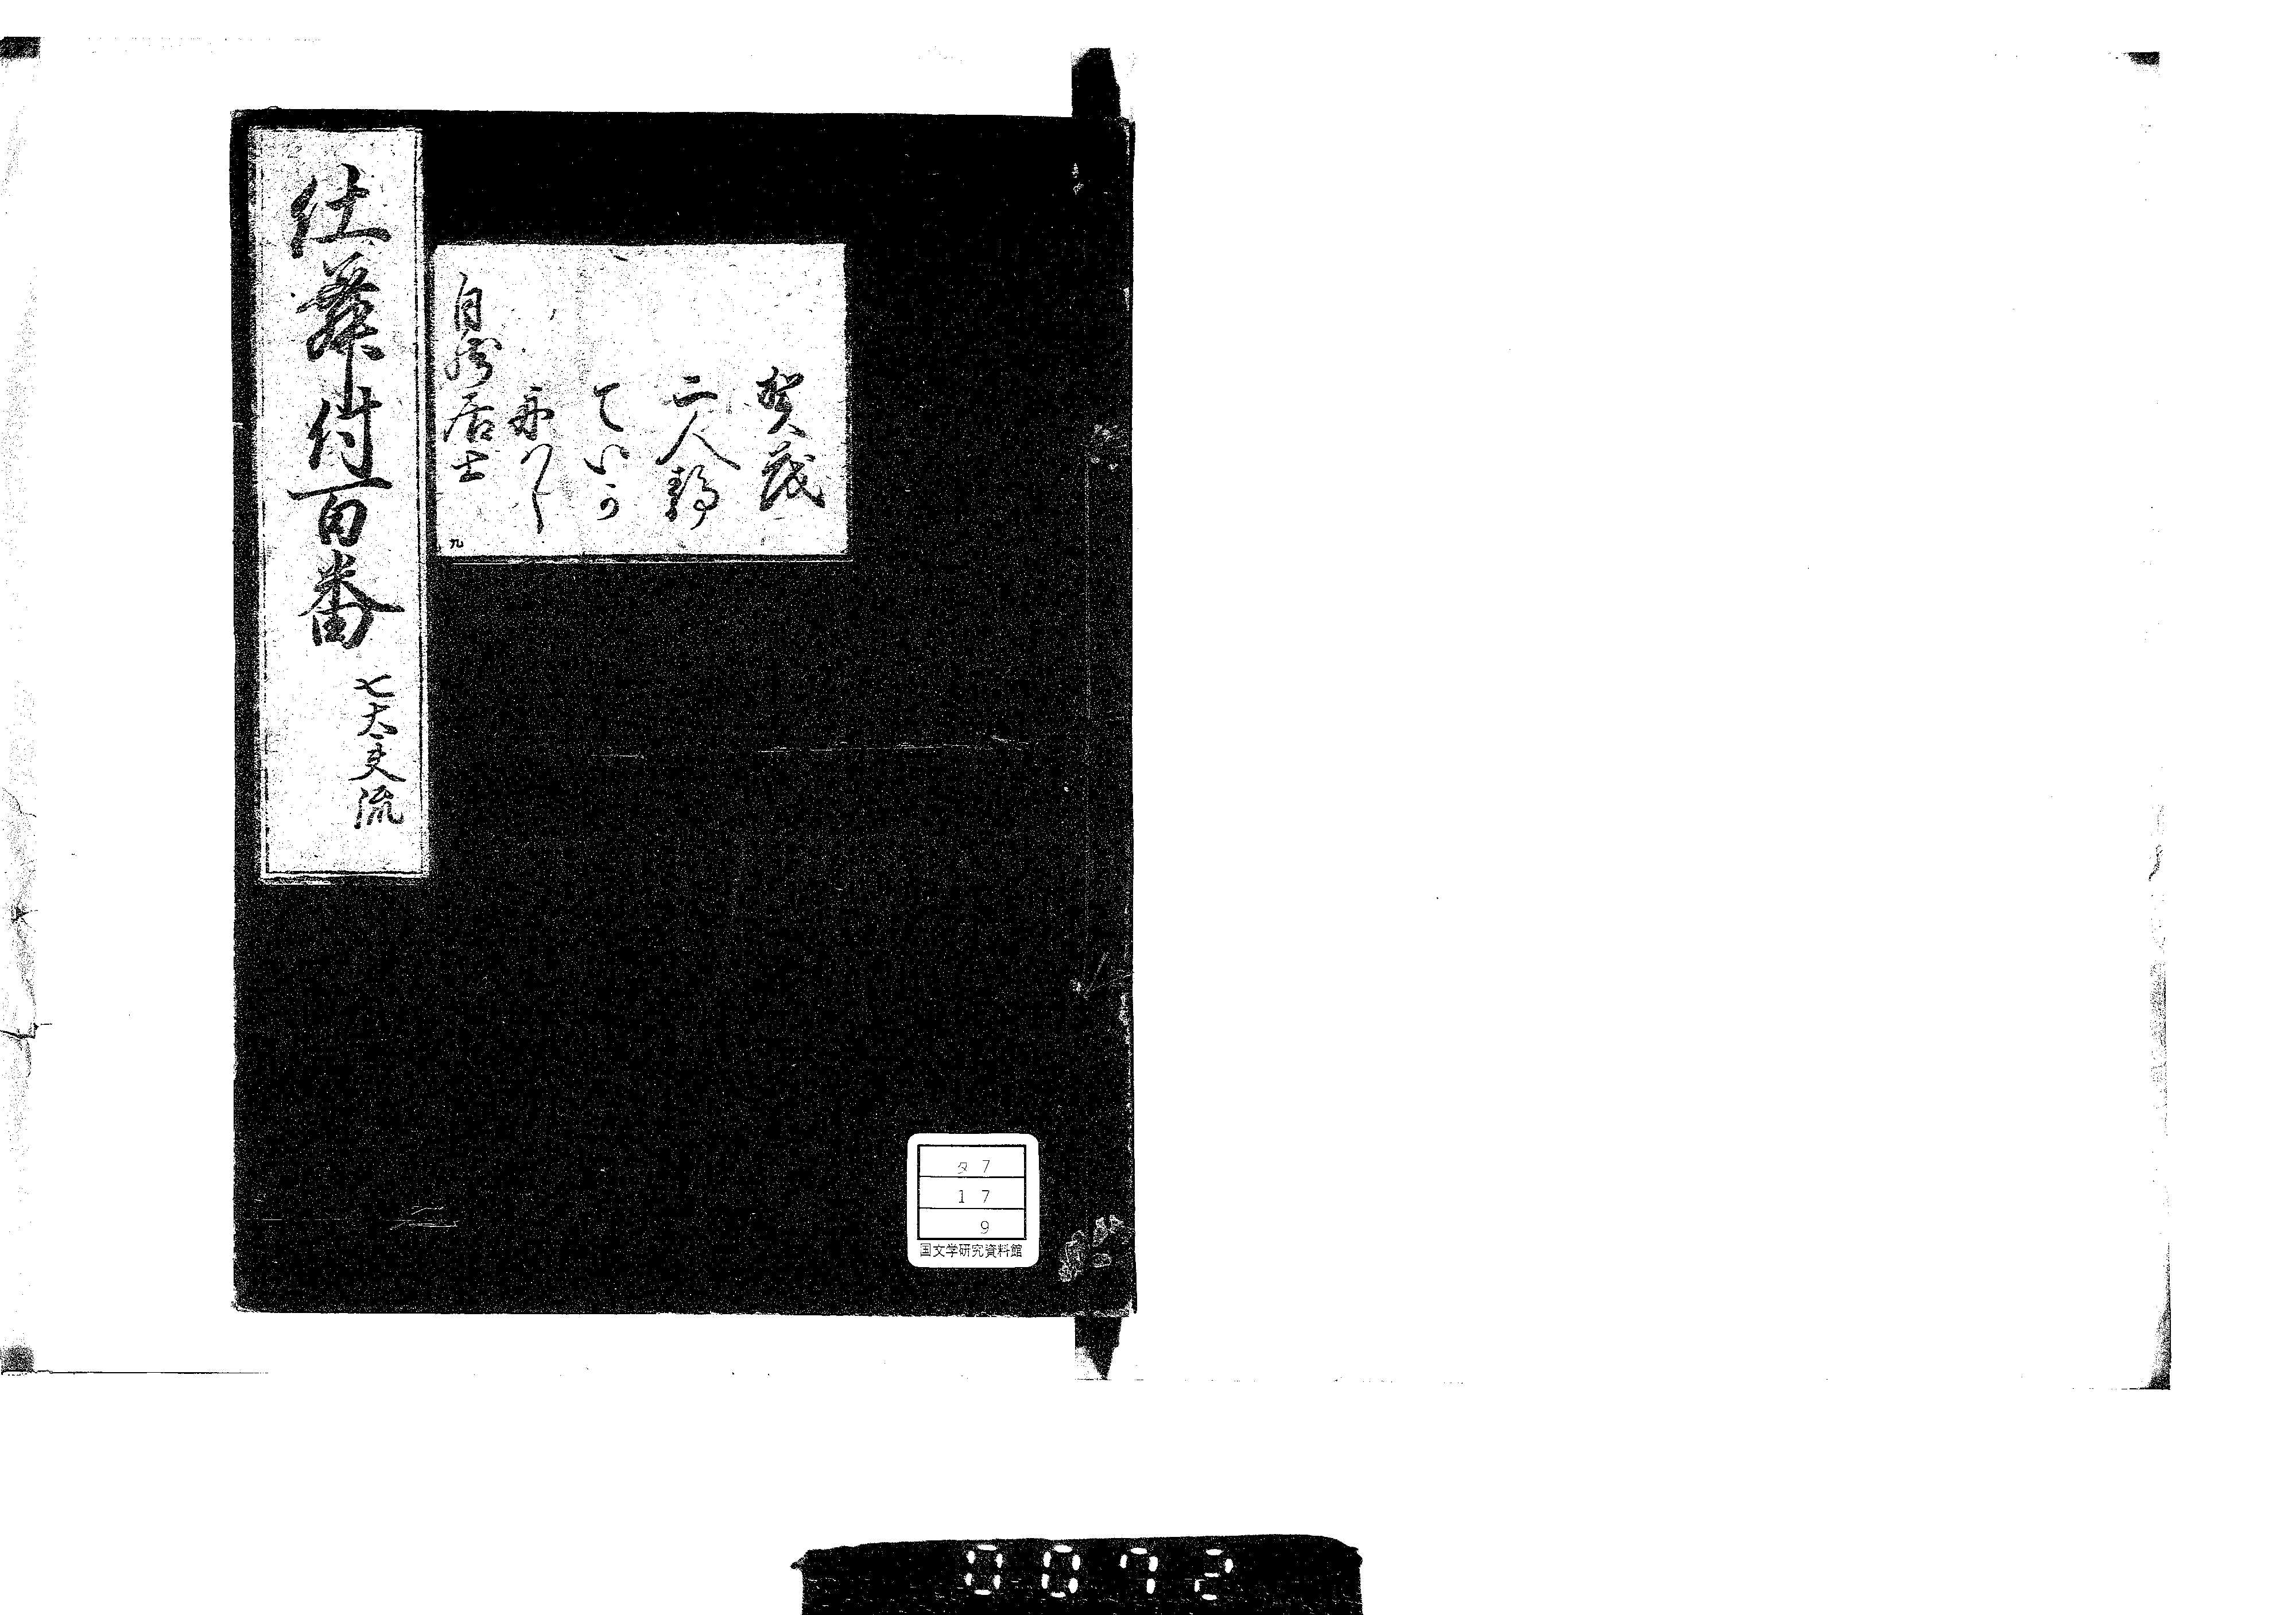 賀茂
二人静
ていか
舟ハし
自然居士
九
仕舞付百番
七太夫流
タ 7
1 7
9
国文学研究資料館
0072